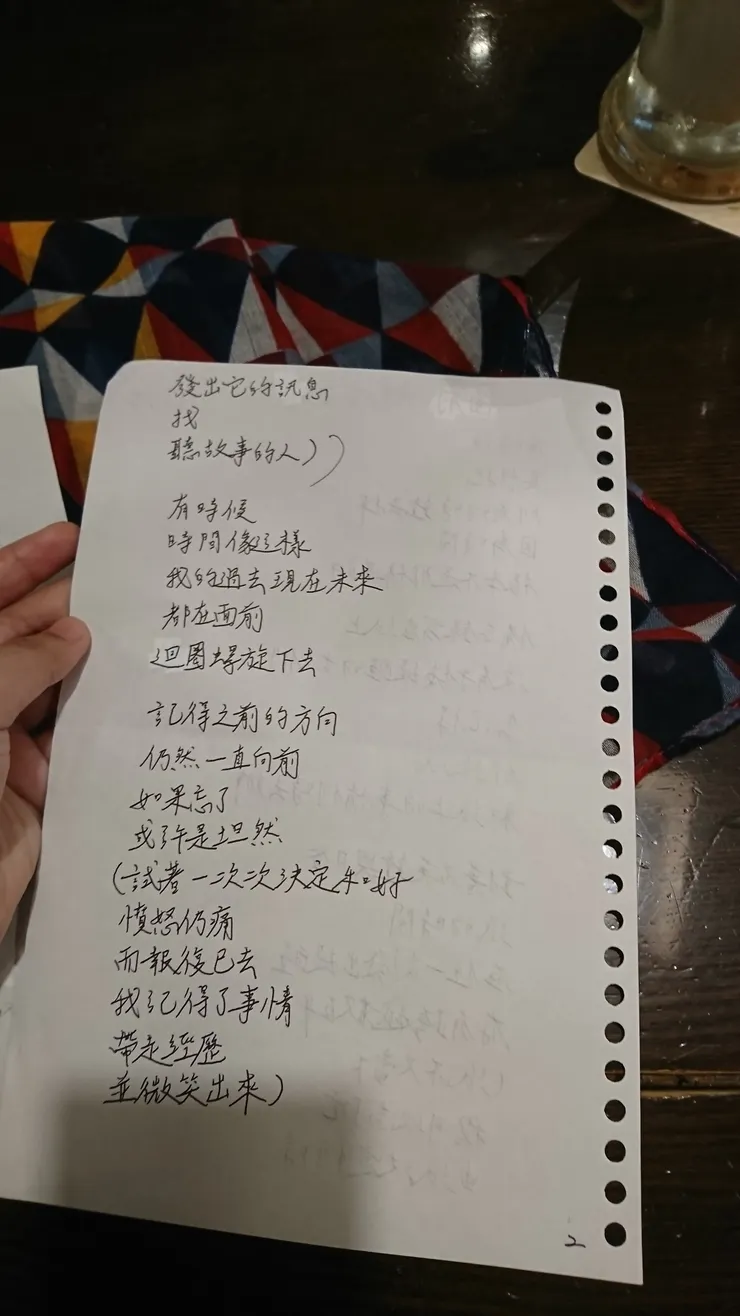 發出它的訊息
找
聽故事的人))
有時候
時間像這樣
我的過去現在未來
都在面前
迴圈螺旋下去
記得之前的方向
仍然一直向前
如果忘了
或許是坦然
(試著一次次決定和好
憤怒仍痛
而報復已去
我記得了事情
帶走經歷
並微笑出來)
2